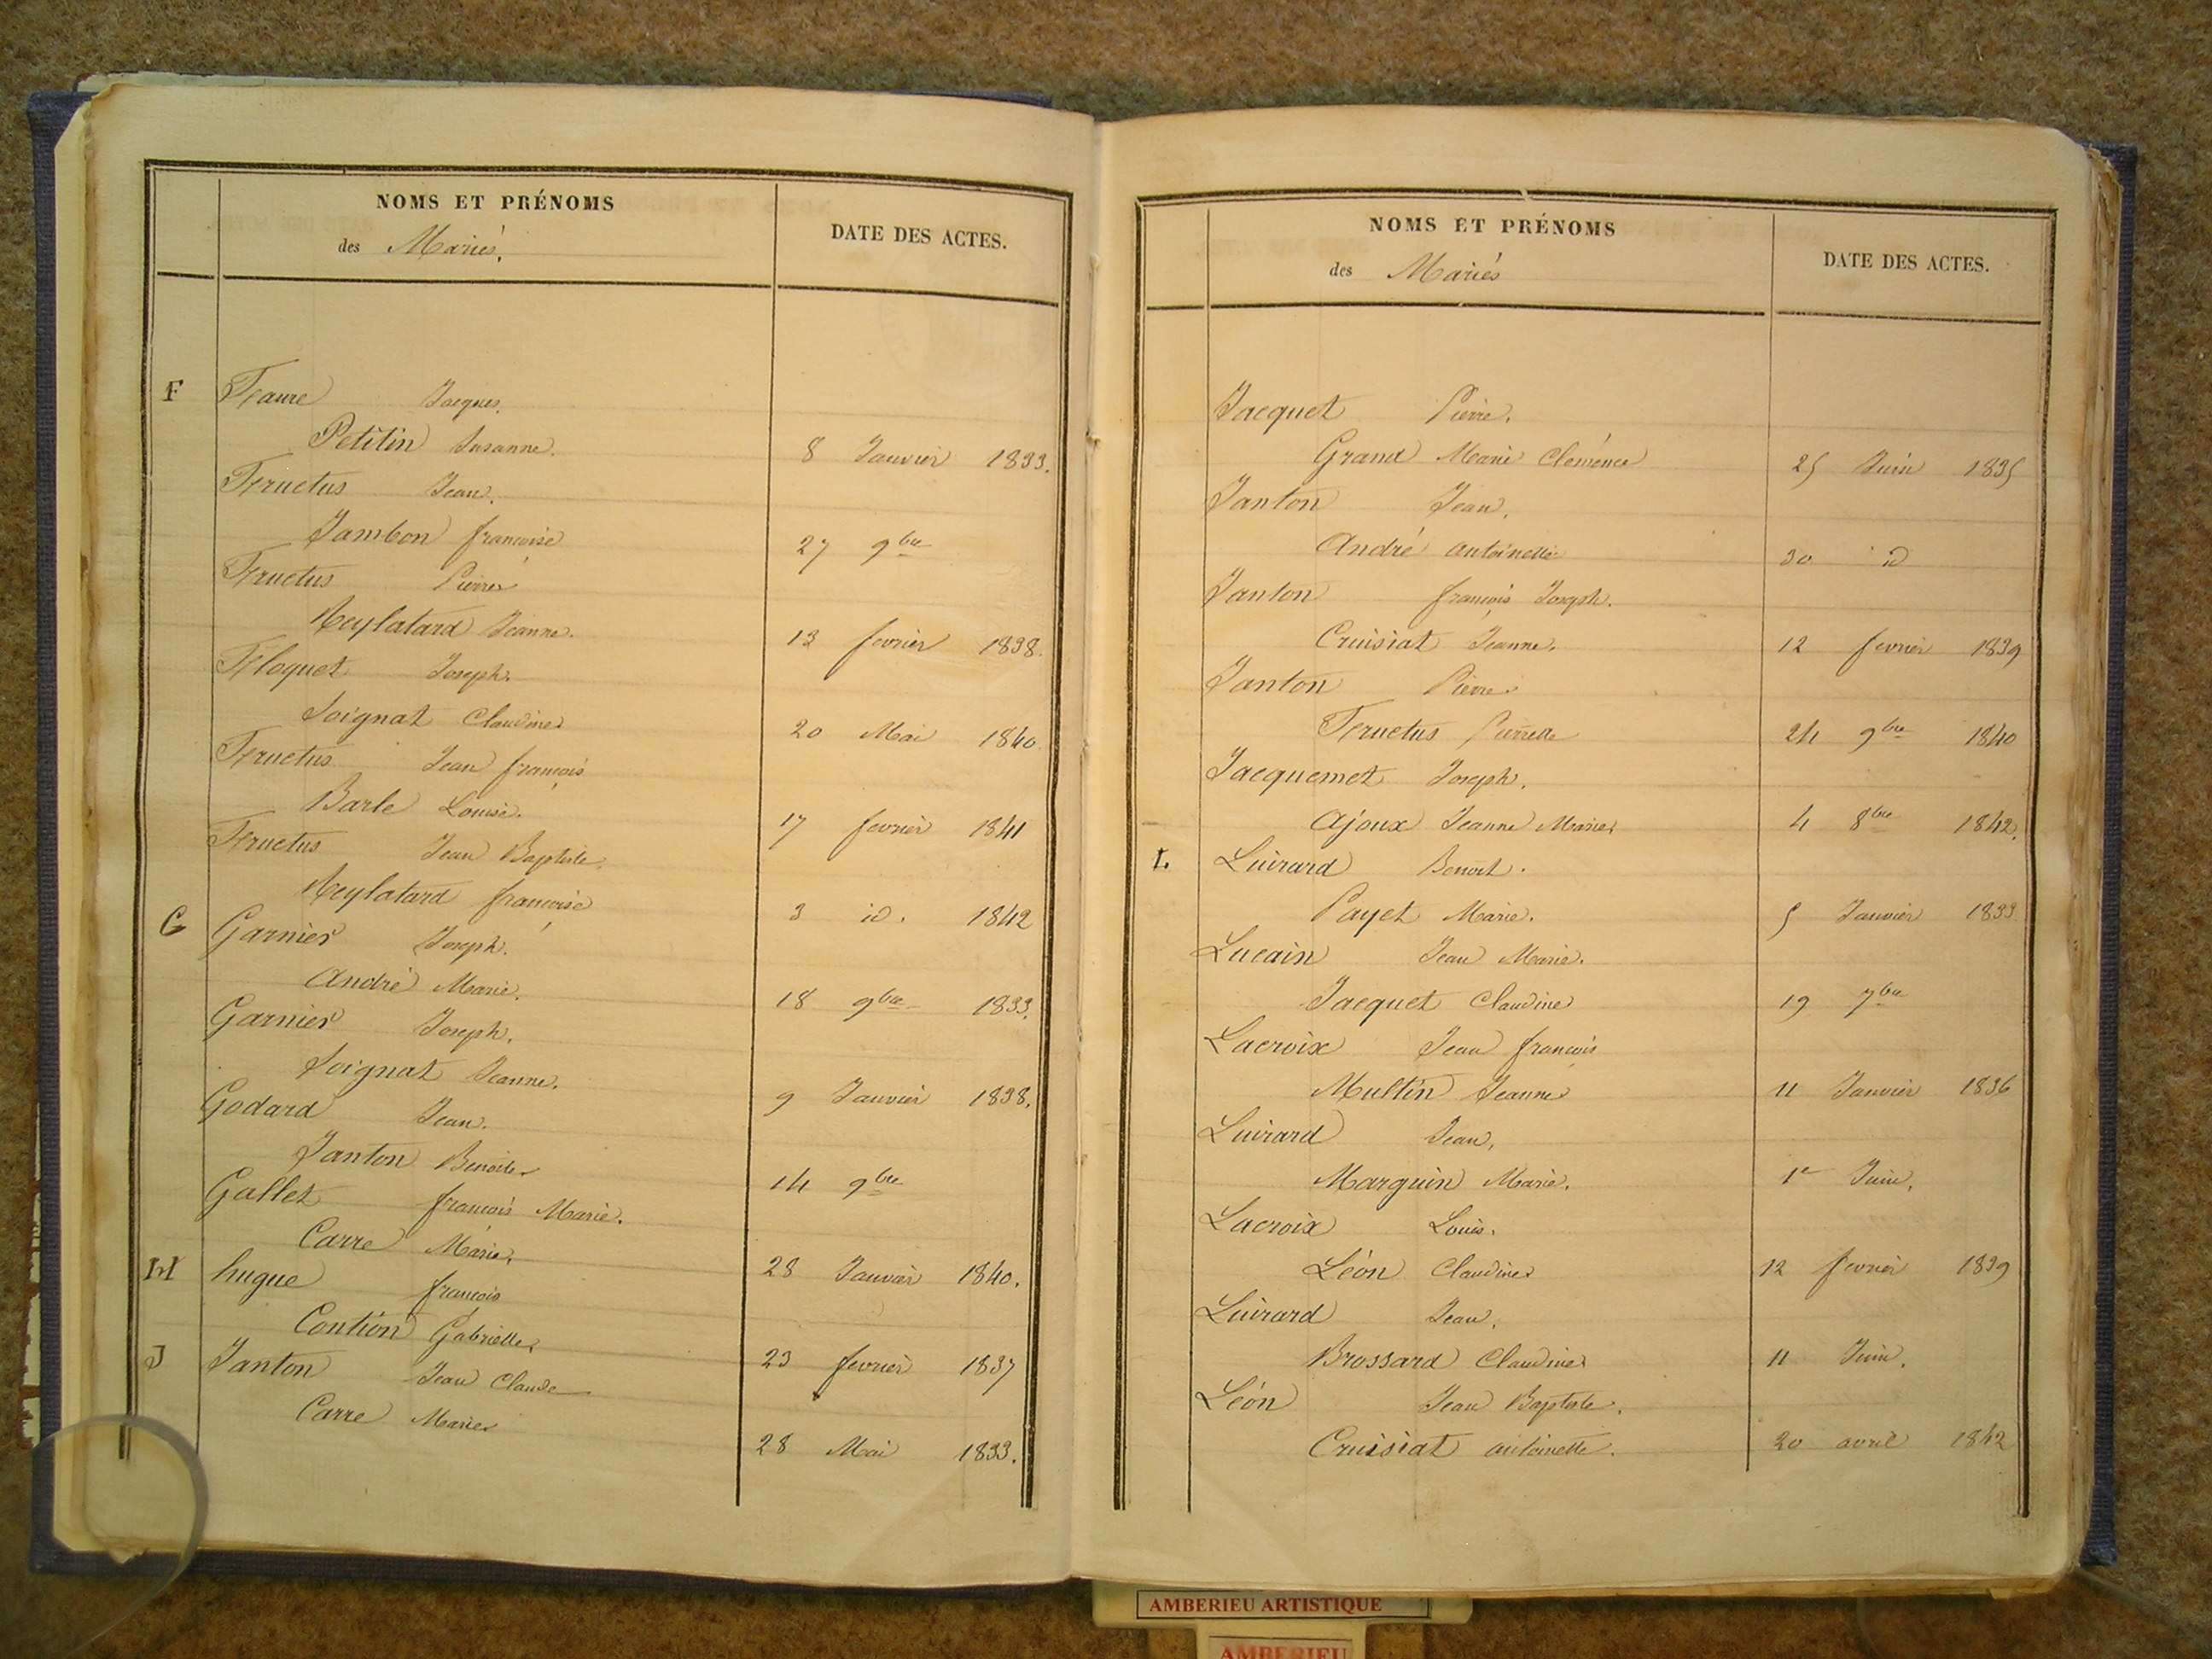 NOMS ET PRÉNOMS
des Mariés.
DATE DES ACTES.
F Faure Jacques.
Petitin Susanne. 8 Janvier 1833.
Fructus Jean.
Jambon françoise 27 9bre
Fructus Pierre
Meylatard Jeanne. 13 fevrier 1838.
Floquet Joseph.
Soignat Claudine 20 Mai 1840
Fructus Jean françois
Barle Louise. 17 fevrier 1841
Fructus Jean Baptiste.
Meylatard françoise 3 id. 1842
G Garnier Joseph.
André Marie. 18 9bre 1833.
Garnier Joseph.
Soignat Jeanne. 9 Janvier 1838.
Godard Jean.
Janton Benoite 14 9bre
Gallet françois Marie.
Carre Marie. 28 Janvier 1840.
H hugue françois
Contion Gabrielle 23 fevrier 1837
J Janton Jean Claude
Carre Marie 28 Mai 1833.
NOMS ET PRÉNOMS
des Mariés
DATE DES ACTES.
Jacquet Pierre.
Grand Marie Clémence 25 Juin 1835
Janton Jean.
André antoinette 30 id
Janton françois Joseph.
Cruisiat Jeanne. 12 fevrier 1839
Janton Pierre
Fructus Pierrette 24 9bre 1840
Jacquemet Joseph.
Ajoux Jeanne Marie 4 8bre 1842.
L Luirard Benoit.
Payet Marie. 5 Janvier 1833
Lucain Jean Marie.
Jacquet Claudine 19 7bre
Lacroix Jean françois
Multin Jeanne 11 Janvier 1836
Luirard Jean.
Marguin Marie. 1er Juin.
Lacroix Louis.
Léon Claudine 12 fevrier 1839
Luirard Jean.
Brossard Claudine 11 Juin.
Léon Jean Baptiste.
Cruisiat antoinette. 20 avril 1842
AMBERIEU ARTISTIQUE
AMBERIEU